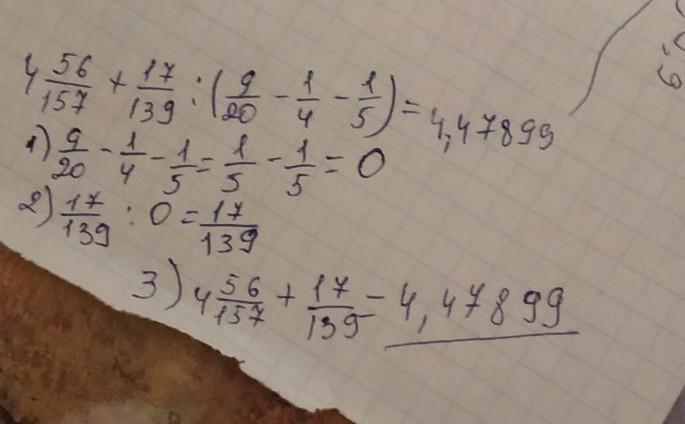 4 56/157 + 17/139 : (9/20 - 1/4 - 1/5) = 4,47899
1) 9/20 - 1/4 - 1/5 = 1/5 - 1/5 = 0
2) 17/139 : 0 = 17/139
3) 4 56/157 + 17/139 = 4,47899